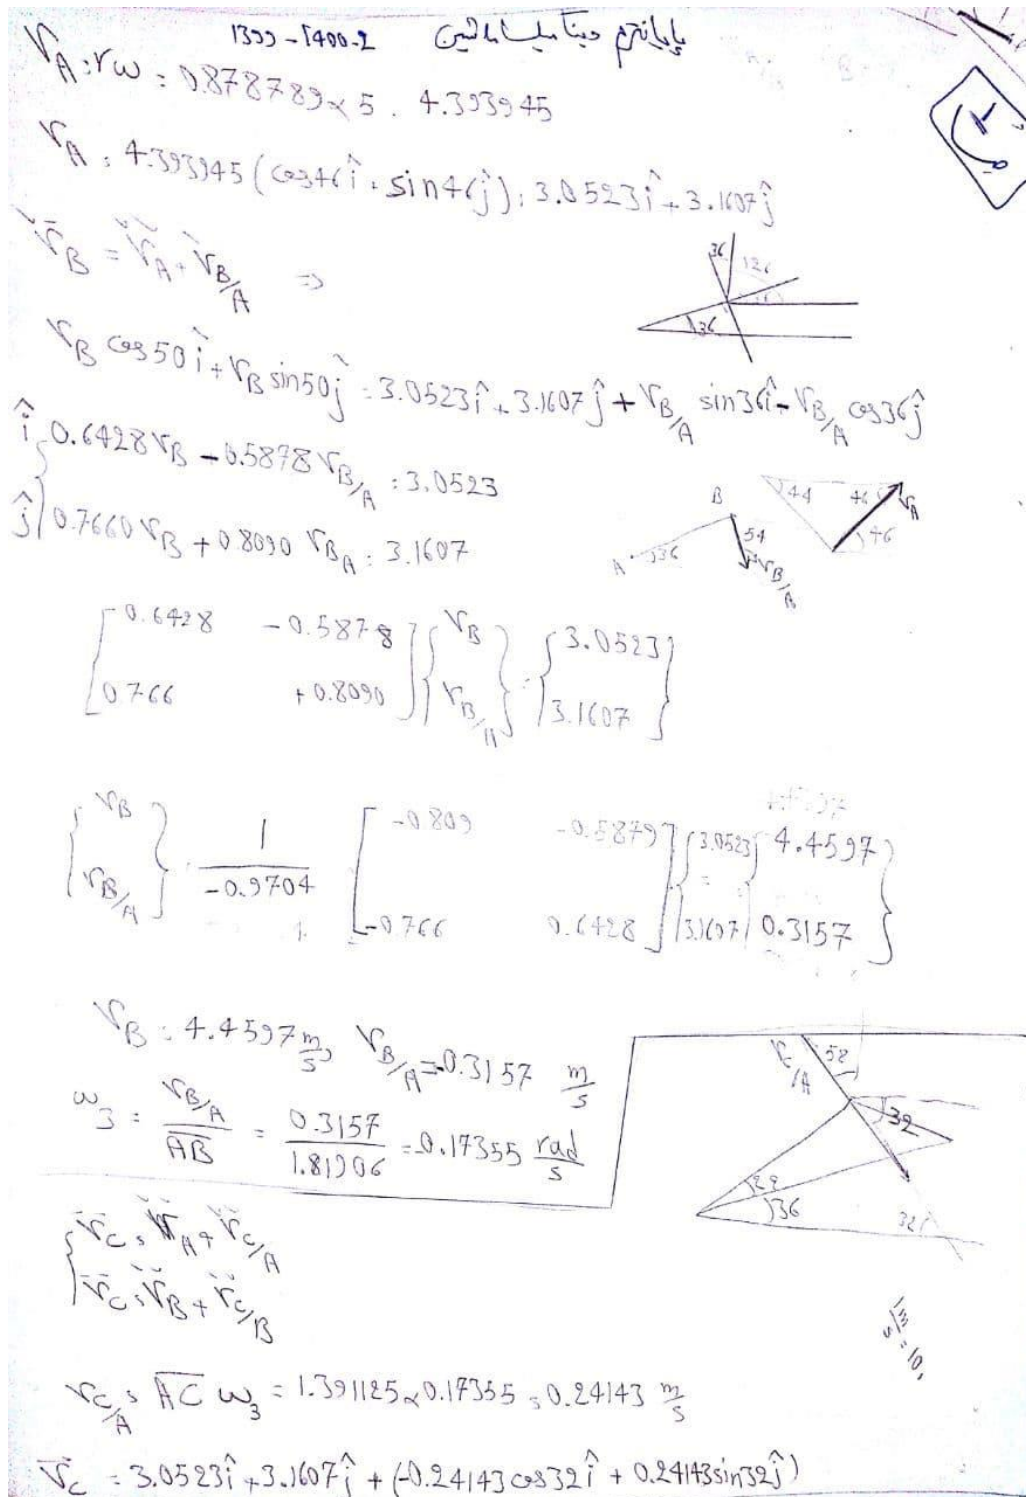 پایانترم دینامیک ماشین 1399-1400-2
V_A = rω = 0.878789 × 5 = 4.393945
V_A = 4.393945 (cos46 î + sin46 ĵ) = 3.0523 î + 3.1607 ĵ
V_B = V_A + V_B/A ⇒
36 126
36
V_B cos50 î + V_B sin50 ĵ = 3.0523 î + 3.1607 ĵ + V_B/A sin36 î - V_B/A cos36 ĵ
î 0.6428 V_B - 0.5878 V_B/A = 3.0523
ĵ 0.7660 V_B + 0.8090 V_B/A = 3.1607
B 54 V_B/A A 36
44 46 V_A 46
[0.6428 -0.5878] {V_B} = {3.0523}
[0.766 +0.8090] {V_B/A} {3.1607}
{V_B} = 1 [-0.809 -0.5879] {3.0523} = {4.4597}
{V_B/A} -0.9704 [-0.766 0.6428] {3.1607} {0.3157}
V_B = 4.4597 m/s, V_B/A = -0.3157 m/s
ω_3 = V_B/A / AB = 0.3157 / 1.81906 = -0.17355 rad/s
V_C/A 58
32
22
36 32
V_C = V_A + V_C/A
V_C = V_B + V_C/B
1 m/s = 10
V_C/A = AC ω_3 = 1.391125 × 0.17355 = 0.24143 m/s
V_C = 3.0523 î + 3.1607 ĵ + (-0.24143 cos32 î + 0.24143 sin32 ĵ)